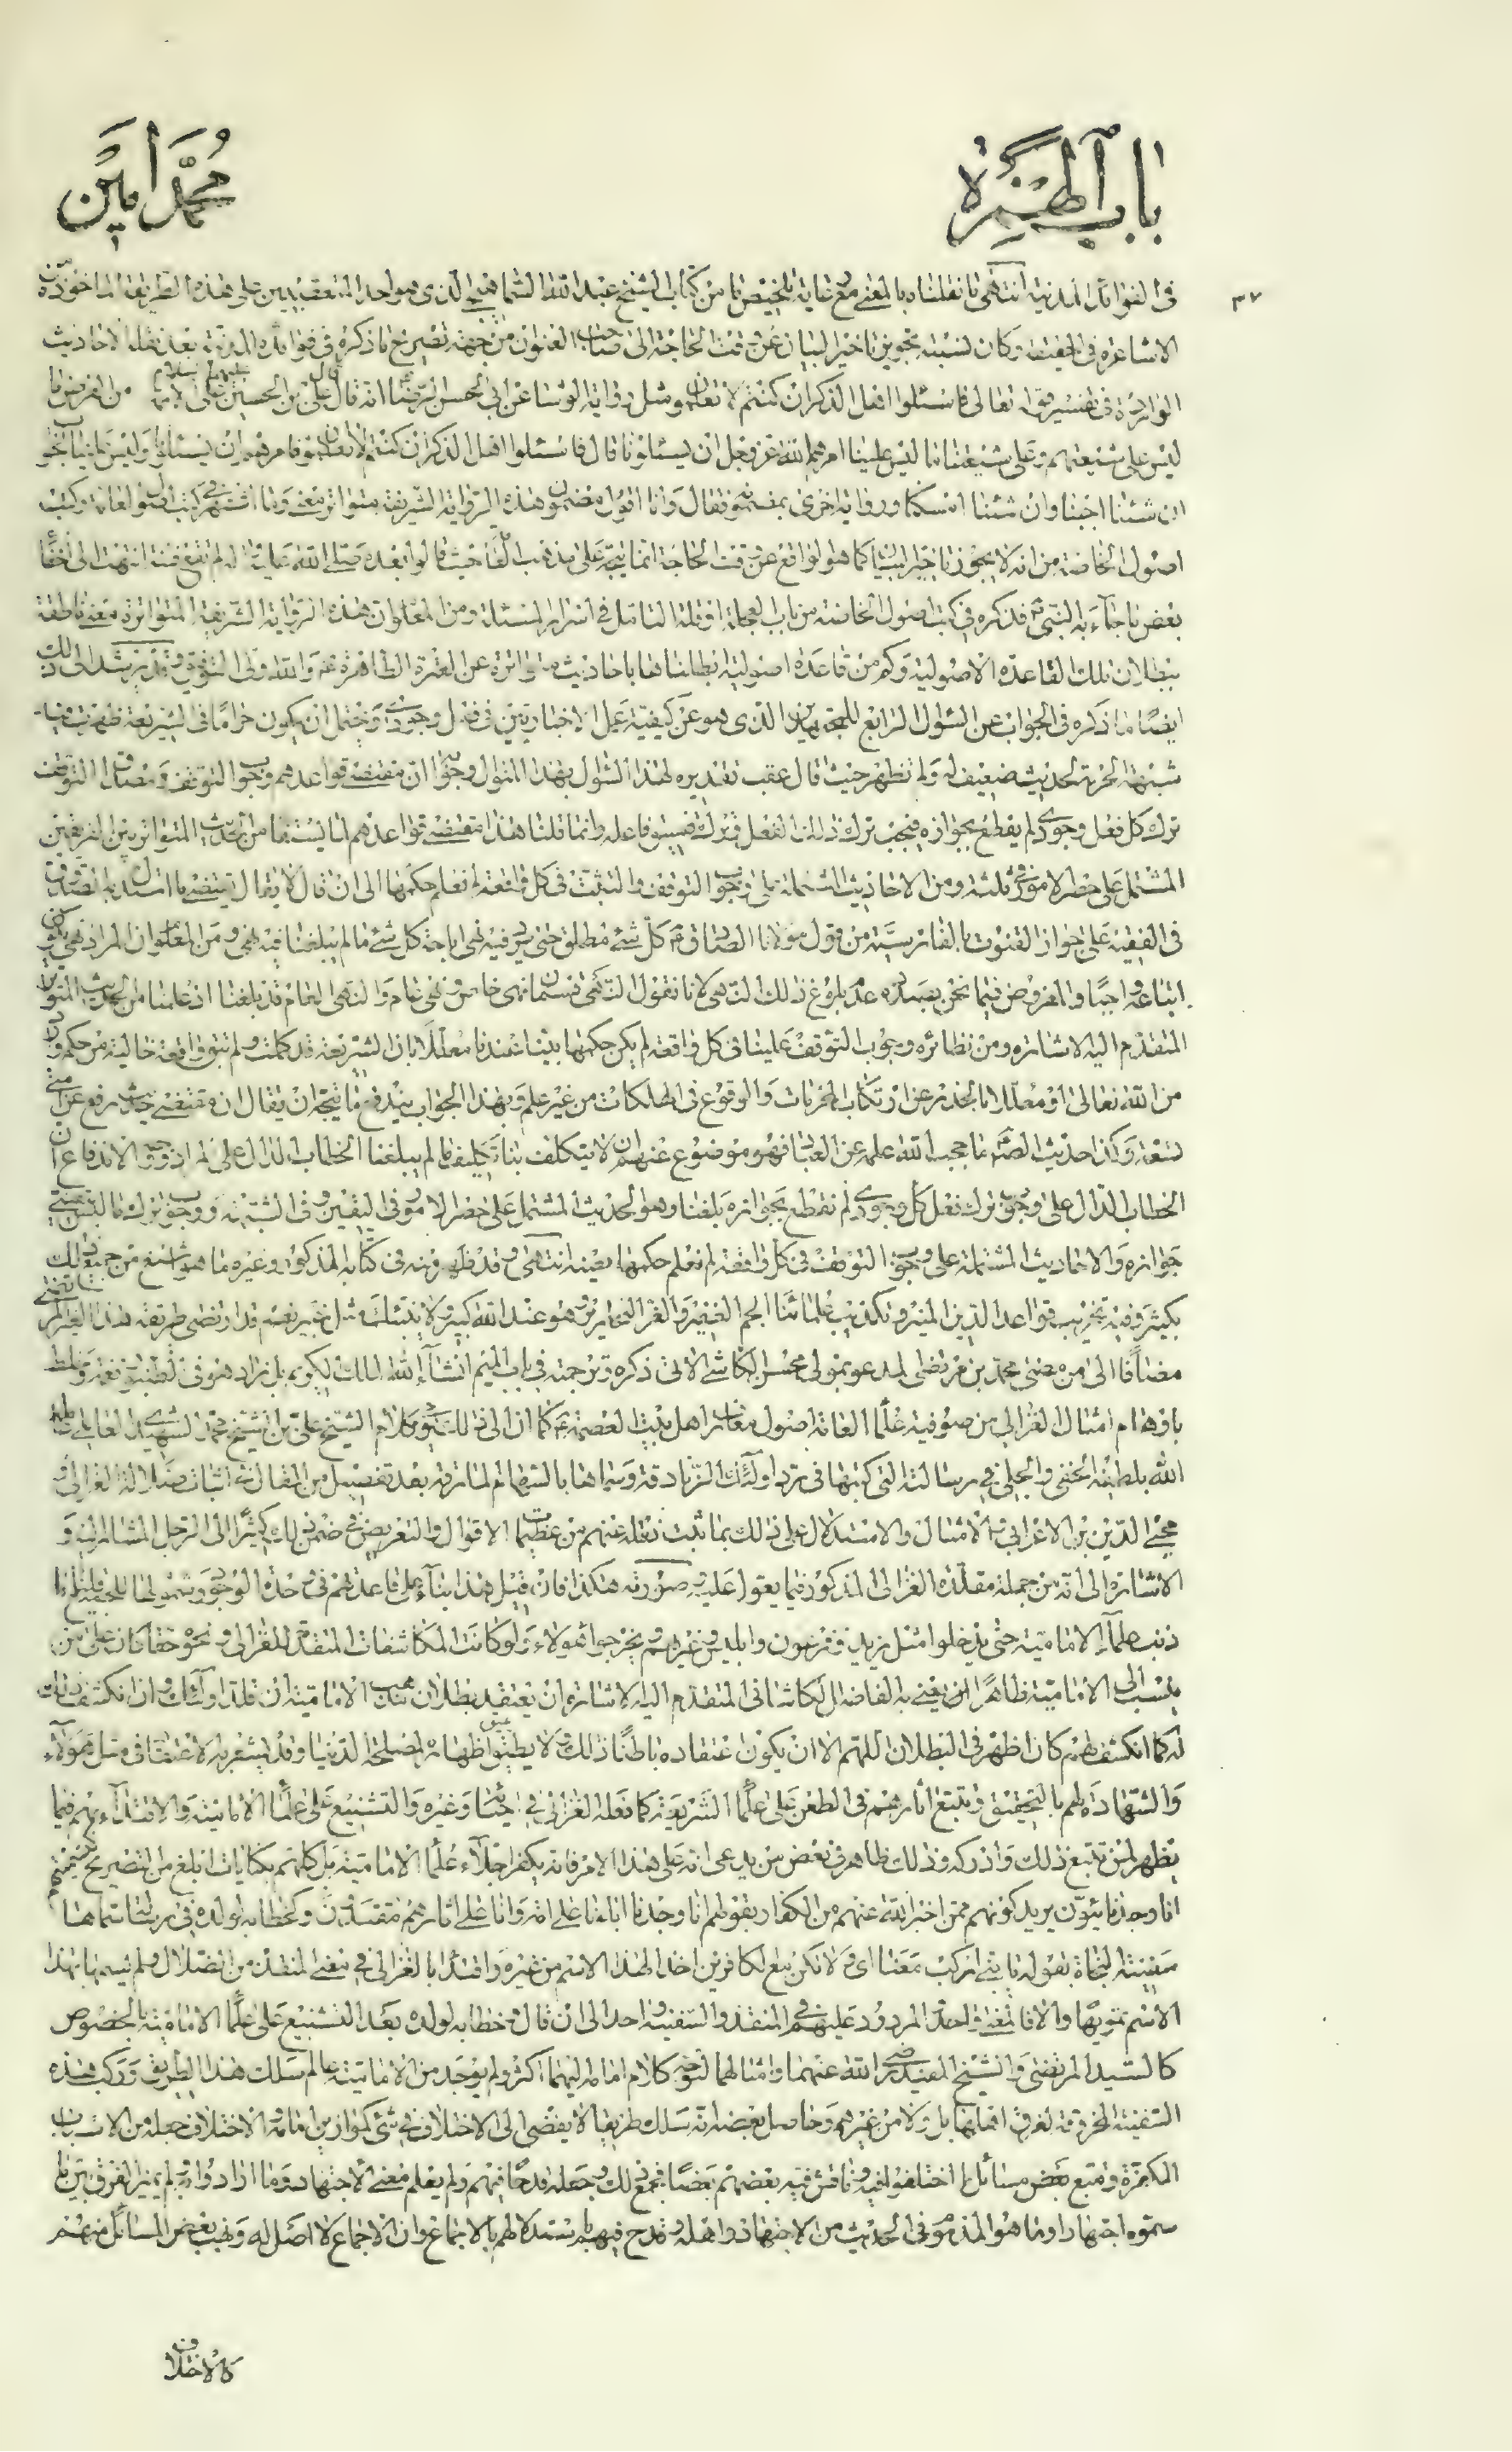 باب الهمزة
محمد أمين
٣٧
في الفوائد المدنية انتهى ما نقلناه بالمعنى مع غاية تلخيص ما من كتاب الشيخ عبد الله السماهيجي الذي هو احد المتعقبين على هذه الطريقة الماخوذة من
الاشاعرة في الحقيقة وكان نسبته تجويز تاخير البيان عن وقت الحاجة الى صاحب العنوان من جهة تصريح ما ذكره في فوائده المدنية بعد نقله الاحاديث
الواردة في تفسير قوله تعالى فاسئلوا اهل الذكر ان كنتم لا تعلمون ومثل رواية الوشا عن ابي الحسن الرضا انه قال قال علي بن الحسين عليهما السلام على الائمة من الفرض ما
ليس على شيعتهم وعلى شيعتنا ما ليس علينا امرهم الله عز وجل ان يسئلونا قال فاسئلوا اهل الذكر ان كنتم لا تعلمون فامرهم ان يسئلونا وليس علينا الجواب
ان شئنا اجبنا وان شئنا امسكنا ورواية اخرى بمضمونه فقال وانا اقول مضمون هذه الرواية الشريفة متواتر معنى وما اشتهر في كتب اصول العامة وكتب
اصول الخاصة من انه لا يجوز تاخير البيان كما هو الواقع عن وقت الحاجة انما يتجه على مذهب العامة حيث قالوا بعده صلى الله عليه واله لم تقع فتنة انتهت الى اخفاء
بعض ما جاء به النبي ص فذكره في كتب اصول الخاصة من باب العجلة او قلة التامل في اسرار المسئلة ومن المعلوم ان هذه الرواية الشريفة المتواترة معنى ناطقة
ببطلان تلك القاعدة الاصولية وكم من قاعدة اصولية ابطلناها باحاديث متواترة عن العترة الطاهرة ع والله ولي التوفيق وقد يرشد الى ذلك
ايضا ما ذكره في الجواب عن السؤال الرابع للمجتهدين الذي هو عن كيفية عمل الاخباريين في فعل وجودي وحتمل ان يكون حراما في الشريعة ظهرت فيه
شبهة الحرمة لحديث ضعيف له ولم تظهر حيث قال عقب تقديره لهذا السؤال بهذا المنوال وجوابه ان مقتضى قواعدهم وجوب التوقف ومصداق التوقف
ترك كل فعل وجودي لم يقطع بجوازه فيجب ترك ذلك الفعل وترك تفسيق فاعله وانما قلنا هذا مقتضى قواعدهم لما يستفاد من الحديث المتواتر بين الفريقين
المشتمل على حصر الامور في ثلثة ومن الاحاديث المشتملة على وجوب التوقف والتثبت في كل واقعة لم نعلم حكمها الى ان قال لا يقال ينقضه ما استدل به الصدوق
في الفقيه على جواز القنوت بالفارسية من قول مولانا الصادق ع كل شئ مطلق حتى يرد فيه نهي اباحة كل شئ ما لم يبلغنا فيه نهي ومن المعلوم ان المراد نهي يكون
اتباعه واجبا والمفروض فيما نحن بصدده عدم بلوغ ذلك النهي لانا نقول النهي قسمان نهي خاص ونهي عام والنهي العام قد بلغنا اذ علمنا من الحديث المتواتر
المتقدم اليه الاشارة ومن نظائره وجوب التوقف علينا في كل واقعة لم يكن حكمها بينا عندنا معللا بان الشريعة قد كملت ولم تبق واقعة خالية من حكم وارد
من الله تعالى او معللا بالحذر عن ارتكاب المحرمات والوقوع في الهلكات من غير علم وبهذا الجواب يندفع ما يتجه ان يقال ان مقتضى حديث رفع عن امتي
تسعة وكذا حديث الصادق ع ما حجب الله علمه عن العباد فهو موضوع عنهم ان لا يتكلف بنا تكليف ما لم يبلغنا الخطاب الدال على المراد ووجه الاندفاع ان
الخطاب الدال على وجوب ترك فعل كل وجودي لم نقطع بجوازه بلغنا وهو الحديث المشتمل على حصر الامور في اليقين وفي الشبهة ووجوب ترك ما ليس بيقيني
جوازه والاحاديث المشتملة على وجوب التوقف في كل واقعة لم نعلم حكمها بعينه انتهى وقد ظهر منه في كتابه المذكور وغيره ما هو اشنع من جميع ذلك
بكثير وفيه تخريب قواعد الدين المنير وتكذيب علمائنا الجم الغفير والعز النحارير وهو عند الله كبير ولا ينبئك مثل خبير نعم قد ارتضى طريقة هذا الرجل
مضافا الى من مضى محمد بن مرتضى المدعو بمولى محسن الكاشي الاتي ذكره وترجمته في باب الميم انشاء الله الملك الكريم بل زاد هو في الطنبور نغمة وخلط
باوهام امثال الغزالي من صوفية علماء العامة اصول معارف اهل بيت العصمة ع كما اشار الى ذلك كلام الشيخ علي بن الشيخ محمد الشهيدي العاملي عامله
الله بلطفه الخفي والجلي في رسالته التي كتبها في رد اولئك الزنادقة وسماها بالسهام المارقة بعد تفصيل من المقال في اثبات ضلالة الغزالي و
محيي الدين بن الاعرابي والامثال والاستدلال على ذلك بما ثبت نقله عنهم من عظيمات الاقوال والتعريض في ضمن ذلك كثيرا الى الرجل المشار اليه و
الاشارة الى انه من جملة مقلدة الغزالي المذكور فيما يعول عليه صورته هكذا فان قيل هذا بناء على قاعدتهم في وحدة الوجود وشمولها للجميع قلنا ما
ذنب علماء الامامية حتى يدخلوا مثل يزيد وفرعون وابليس وغيرهم ويخرجوا هؤلاء ولو كانت المكاشفات المتقدمة للغزالي ونحوه حقا كان على من
ينسب الى الامامية ظاهرا الذي يعني به الفاضل الكاشاني المتقدم اليه الاشارة ان يعتقد بطلان مذهب الامامية ان قلد اولئك وان انكشف ذلك
له كما انكشف لهم كان اظهر في البطلان اللهم الا ان يكون اعتقاده باطنا ذلك ولا يطيق اظهاره لمصلحة الدنيا وقد يشعر به الاعتقاد في مثل هؤلاء
والشهادة لهم بالتحقيق وتتبع اثارهم في الطعن على علماء الشريعة كما فعله الغزالي في احيائه وغيره والتشنيع على علماء الامامية والاقتداء بهم فيما
يظهر لمن تتبع ذلك وادركه وذلك ظاهر في بعض من يدعي انه على هذا الامر فانه يكفر اجلاء علماء الامامية بل كلهم بكنايات ابلغ من التصريح كتسميتهم
انا وجدنائيون يريد كونهم ممن اخبر الله عنهم من الكفار بقولهم انا وجدنا اباءنا على امة وانا على اثارهم مقتدون وكخطابه لولده في رسالة سماها
سفينة النجاة بقوله يا بني اركب معنا اي ولا تكن مع الكافرين اخذ لهذا الاسم من غيره واقتداء بالغزالي في تسمية المنقذ من الضلال ولم يسمها بهذا
الاسم تمويها والا فالمعنى واحد المردود عليهم في المنقذ والسفينة واحد الى ان قال وخطابه لولده بعد التشنيع على علماء الامامية بالخصوص
كالسيد المرتضى والشيخ المفيد رضي الله عنهما وامثالهما لتوجه كلام امامه اليهما اكثر ولم يوجد من الامامية عالم سلك هذا الطريق وركب هذه
السفينة المخروقة لغرق اهلها بل ولا من غيرهم وحاصل غرضه انه سلك طريقا لا يفضي الى الاختلاف في شئ كموازين امامه والاختلاف جعله من الاسباب
المكفرة وتتبع بعض مسائل ما اختلفوا فيه وناقش فيه بعضهم بعضا فجمع ذلك وجعله قدحا فيهم ولم يعلم معنى الاجتهاد وما ارادوا به ولم يميز الفرق بين ما
سموه اجتهادا وما هو المذموم في الحديث من الاجتهاد واهله وقدح فيهم باستدلالهم بالاجماع وان الاجماع لا اصل له ونصب بعض المسائل منهم
كالاختلاف